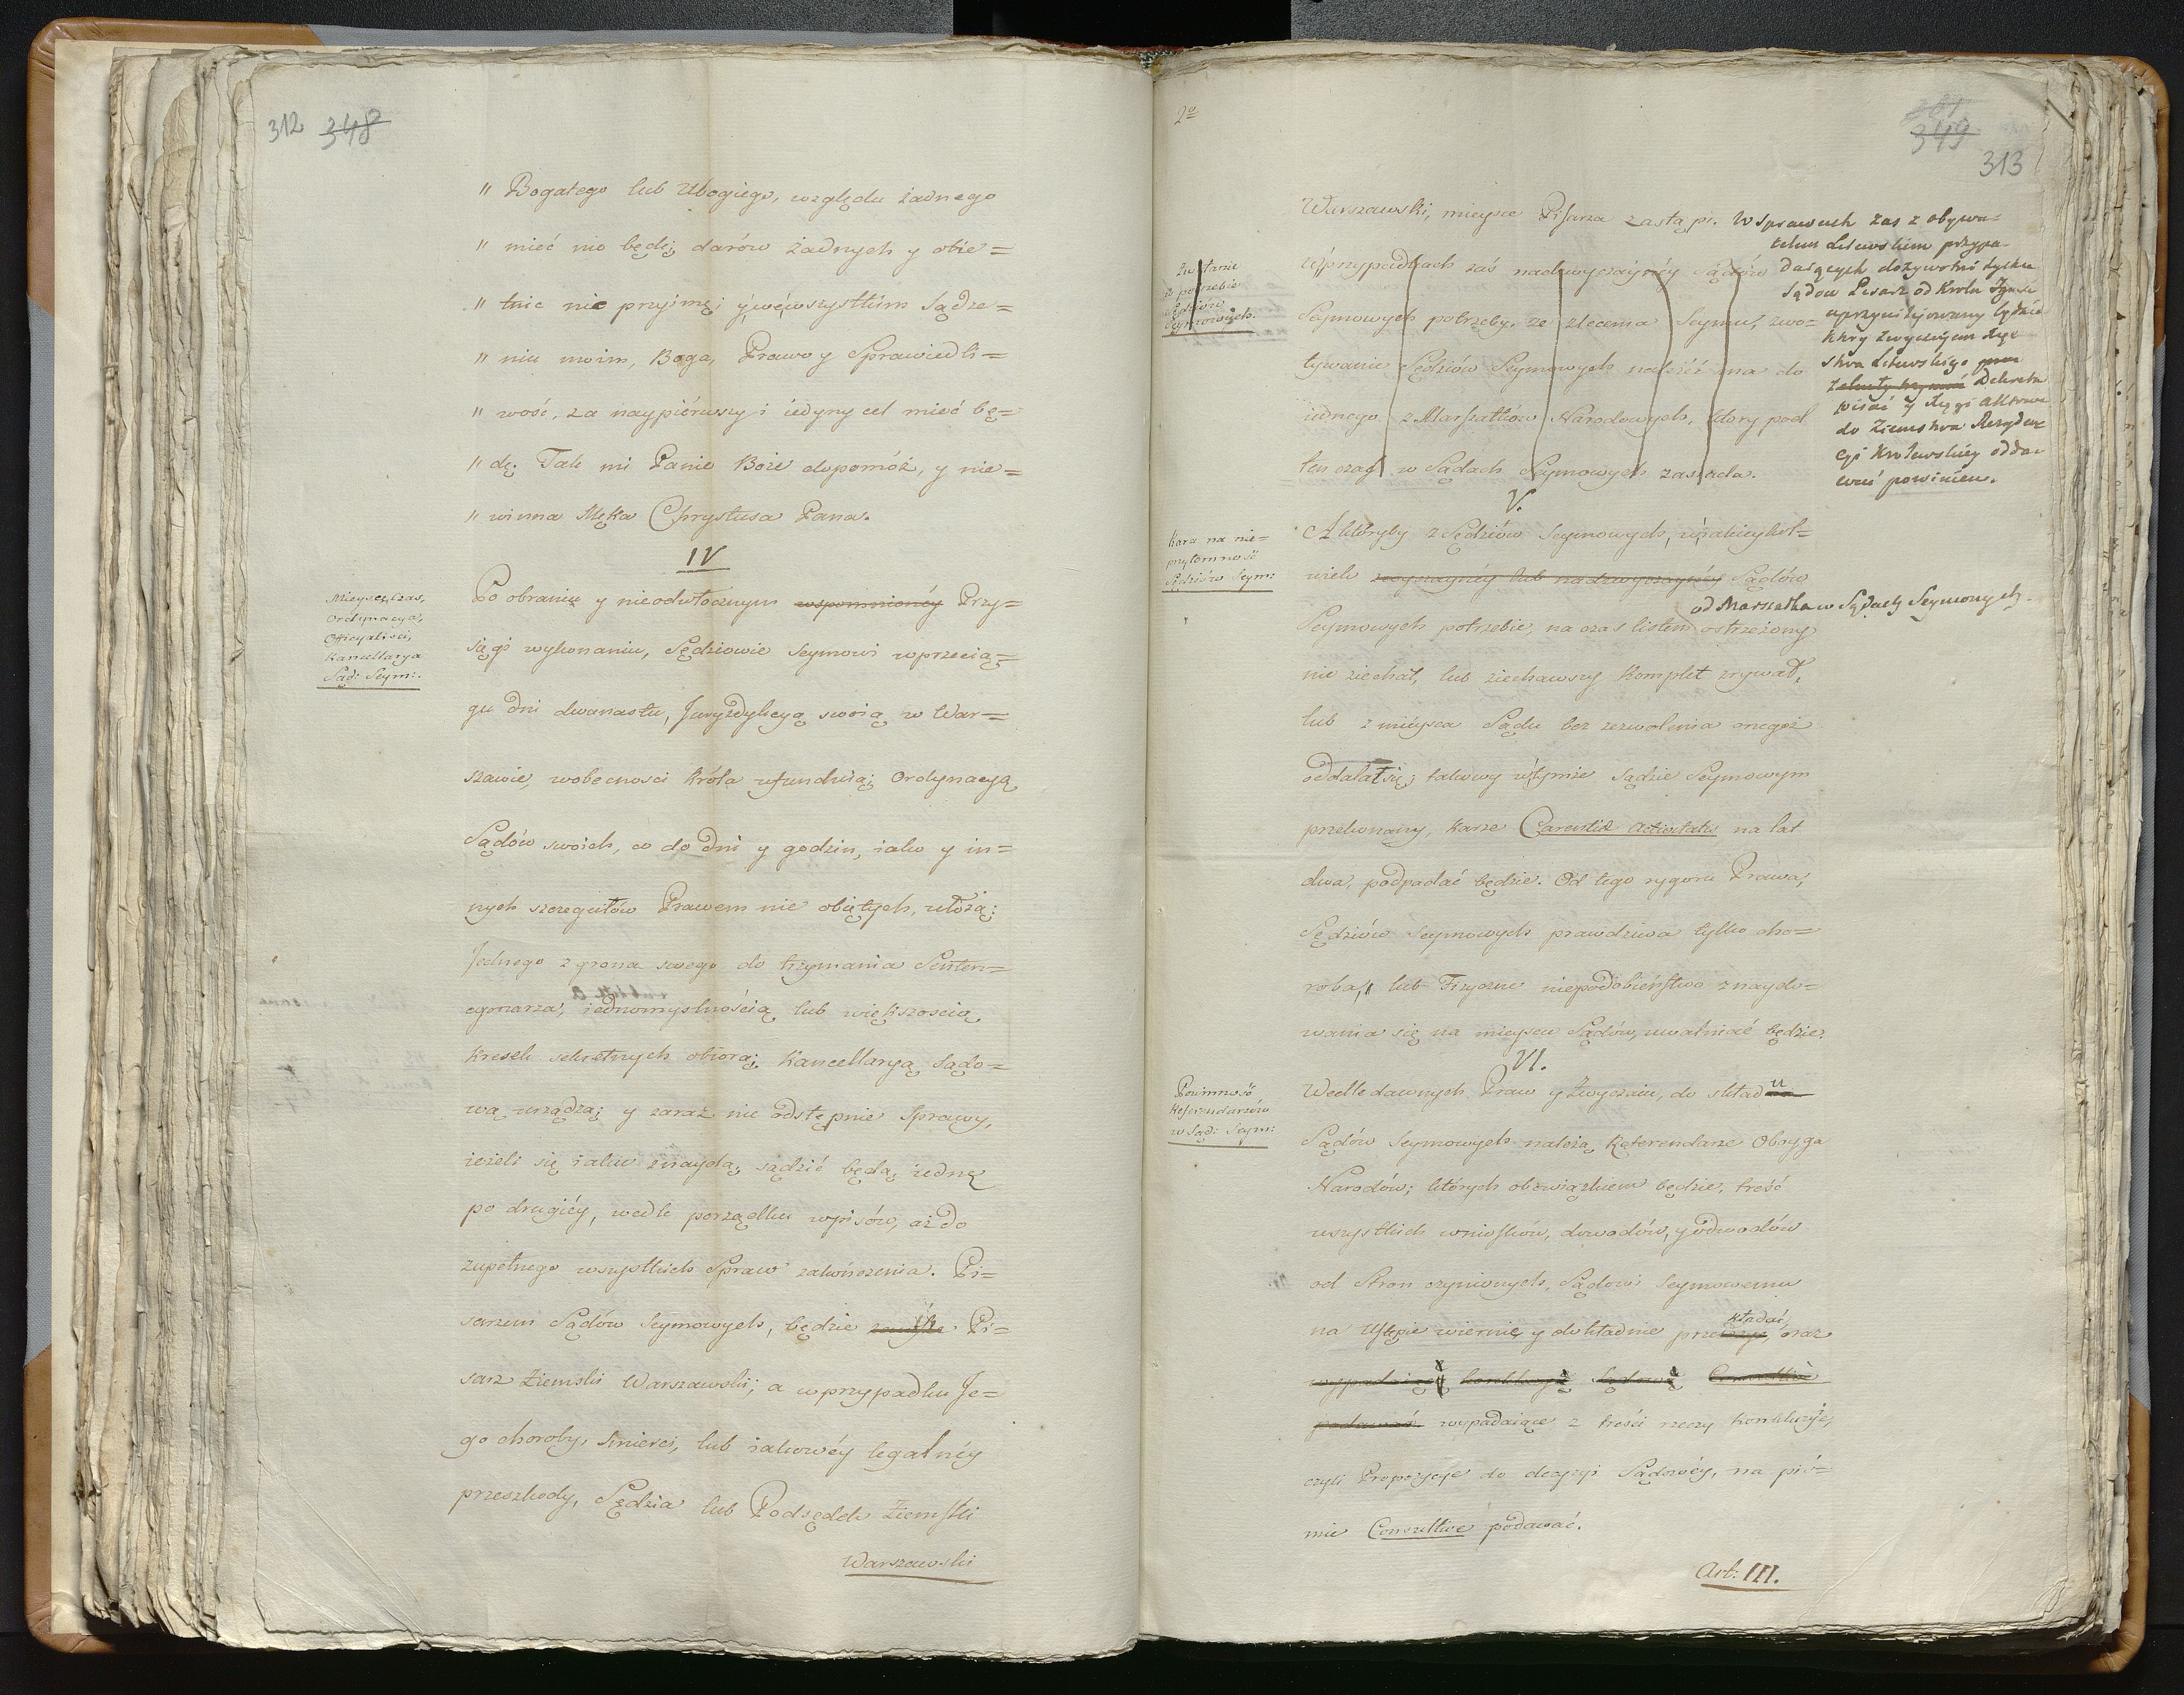 312 348
" Bogatego lub Ubogiego, względu żadnego
" mieć nie będę; darów żadnych y obie=
" tnic nie przyimę; y we wszystkim Sądze=
" niu moim, Boga, Prawo y Sprawiedli=
" wość, za naypiérwszy i iedyny cel mieć bę=
" dę. Tak mi Panie Boże dopomóż, y nie=
" winna Męka Chrystusa Pana.
IV
Mieysce, Czas,
Ordynacya,
Officyaliści,
Kancellarya
Sąd: Seym:.
Po obraniu y nieodwłocznym wspomnionéy Przy=
sięgi wykonaniu, Sędziowie Seymowi w przecią=
gu dni dwunastu, Juryzdykcyą swoią w War=
szawie, w obecnosci Króla ufunduią; Ordynacyą
Sądów swoich, co do dni y godzin, iako y in=
nych szczegułów Prawem nie obiętych, ułożą;
Jednego z grona swego do trzymania Senten=
cyonarza, iednomyslnością lub większoscią
kresek sekretnych obiorą; Kancellaryą Sądo=
wą urządzą; y zaraz nie odstępnie Sprawy,
ieżeli się iakie znaydą, sądzić będą, iednę
po drugiéy, wedle porządku wpisów, aż do
zupełnego wszystkich Spraw zakończenia. Pi=
sarzem Sądów Seymowych, będzie Pi=
sarz Ziemski Warszawski; a w przypadku Je=
go choroby, smierci, lub iakowéy legalnéy
przeszkody, Sędzia lub Podsędek Ziemski
Warszawski
2º
349
313
Warszawski, mieysce Pisarza zastąpi. W sprawach zas z obywa=
telem Litewskim przypa-
daiących dożywotni tychże
Sądow Pisarz od Krola Jgmci
uprzywilejowany będzie
ktory zwyczaiem Xię
stwa Litewskiego
Dekreta
pisać y Xięgi Aktowe
do Ziemstwa Rezydenc
cyi Krolewskiéy odda
wać powinien.
Zwołanie
w potrzebie
Sędziów
Seymowych.
W przypadkach zaś nadzwyczaynéy Sądów
Seymowych potrzeby, ze zlecenia Seymu, zwo=
ływanie Sędziów Seymowych należéć ma do
iednego z Marszałków Narodowych, który pod
ten czas w Sądach Seymowych zasiada.
V.
Kara na nie=
przytomność
Sędziów Seym:
A któryby z Sędziów Seymowych, w iakieykol=
wiek zwyczaynéy lub nadzwyczaynéy Sądów
od Marszałka w Sądach Seymowych
Seymowych potrzebie, na czas listem ostrzeżony
nie ziechał, lub ziechawszy Komplet zrywał,
lub z mieysca Sądu bez zezwolenia onegoż
oddalał się; takowy w tymże Sądzie Seymowym
przekonany, karze Carentiæ Activitatis na lat
dwa, podpadać będzie. Od tego rygoru Prawa,
Sędziów Seymowych prawdziwa tylko cho=
roba, lub Fizyczne niepodobieństwo znaydo=
wania się na mieyscu Sądów, uwalniać będzie.
VI.
Powinność
Referendarzów
w Sąd: Seym:
Wedle dawnych Praw y Zwyczaiu, do składu
Sądów Seymowych należą Referendarze Oboyga
Narodów; których obowiązkiem będzie, treść
wszystkich wniosków, dowodów, y odwodów
od Stron czynionych, Sądowi Seymowemu
kładać,
na Ustępie wiernie y dokładnie prze oraz
podawać wypadaiące z treści rzeczy Konkluzye,
czyli Propozycye do decyzyi Sądowéy, na piś=
mie Consultive podawać.
Art: III.